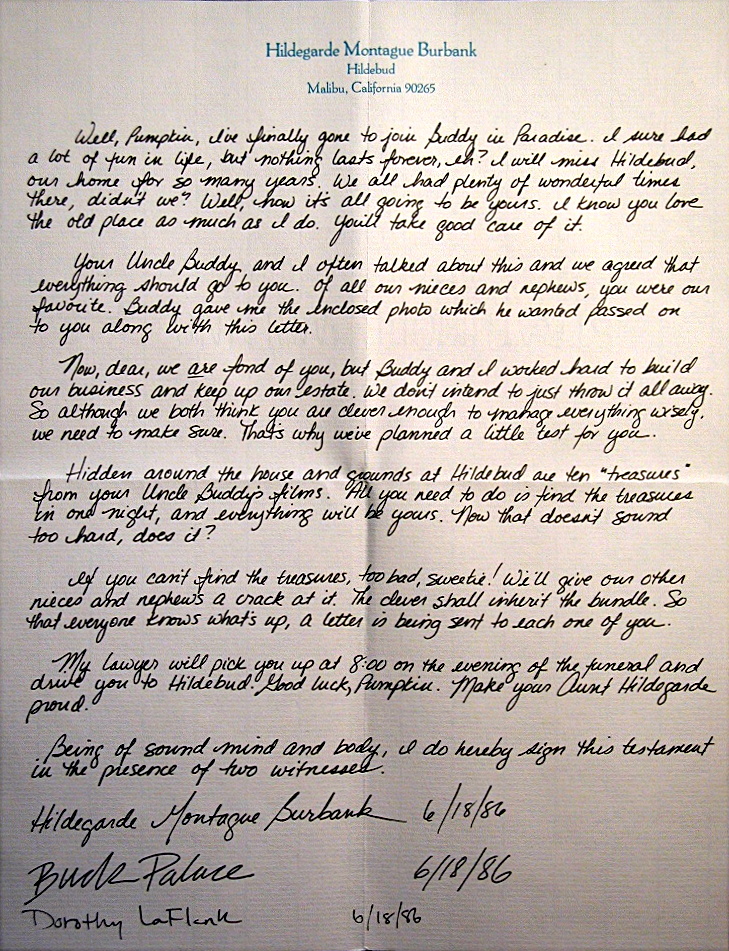 Hildegarde Montague Burbank
Hildebud
Malibu, California 90265
Well, Pumpkin, I've finally gone to join Buddy in Paradise. I sure had
a lot of fun in life, but nothing lasts forever, eh? I will miss Hildebud,
our home for so many years. We all had plenty of wonderful times
there, didn't we? Well, now it's all going to be yours. I know you love
the old place as much as I do. You'll take good care of it.
Your Uncle Buddy and I often talked about this and we agreed that
everything should go to you. Of all our nieces and nephews, you were our
favorite. Buddy gave me the enclosed photo which he wanted passed on
to you along with this letter.
Now, dear, we are fond of you, but Buddy and I worked hard to build
our business and keep up our estate. We don't intend to just throw it all away.
So although we both think you are clever enough to manage everything wisely,
we need to make sure. That's why we've planned a little test for you.
Hidden around the house and grounds at Hildebud are ten "treasures"
from your Uncle Buddy's films. All you need to do is find the treasures
in one night, and everything will be yours. Now that doesn't sound
too hard, does it?
If you can't find the treasures, too bad, sweetie! We'll give our other
nieces and nephews a crack at it. The clever shall inherit the bundle. So
that everyone knows what's up, a letter is being sent to each one of you.
My lawyer will pick you up at 8:00 on the evening of the funeral and
drive you to Hildebud. Good luck, Pumpkin. Make your Aunt Hildegarde
proud.
Being of sound mind and body, I do hereby sign this testament
in the presence of two witnesses.
Hildegarde Montague Burbank 6/18/86
Buck Palace 6/18/86
Dorothy LaFlank 6/18/86